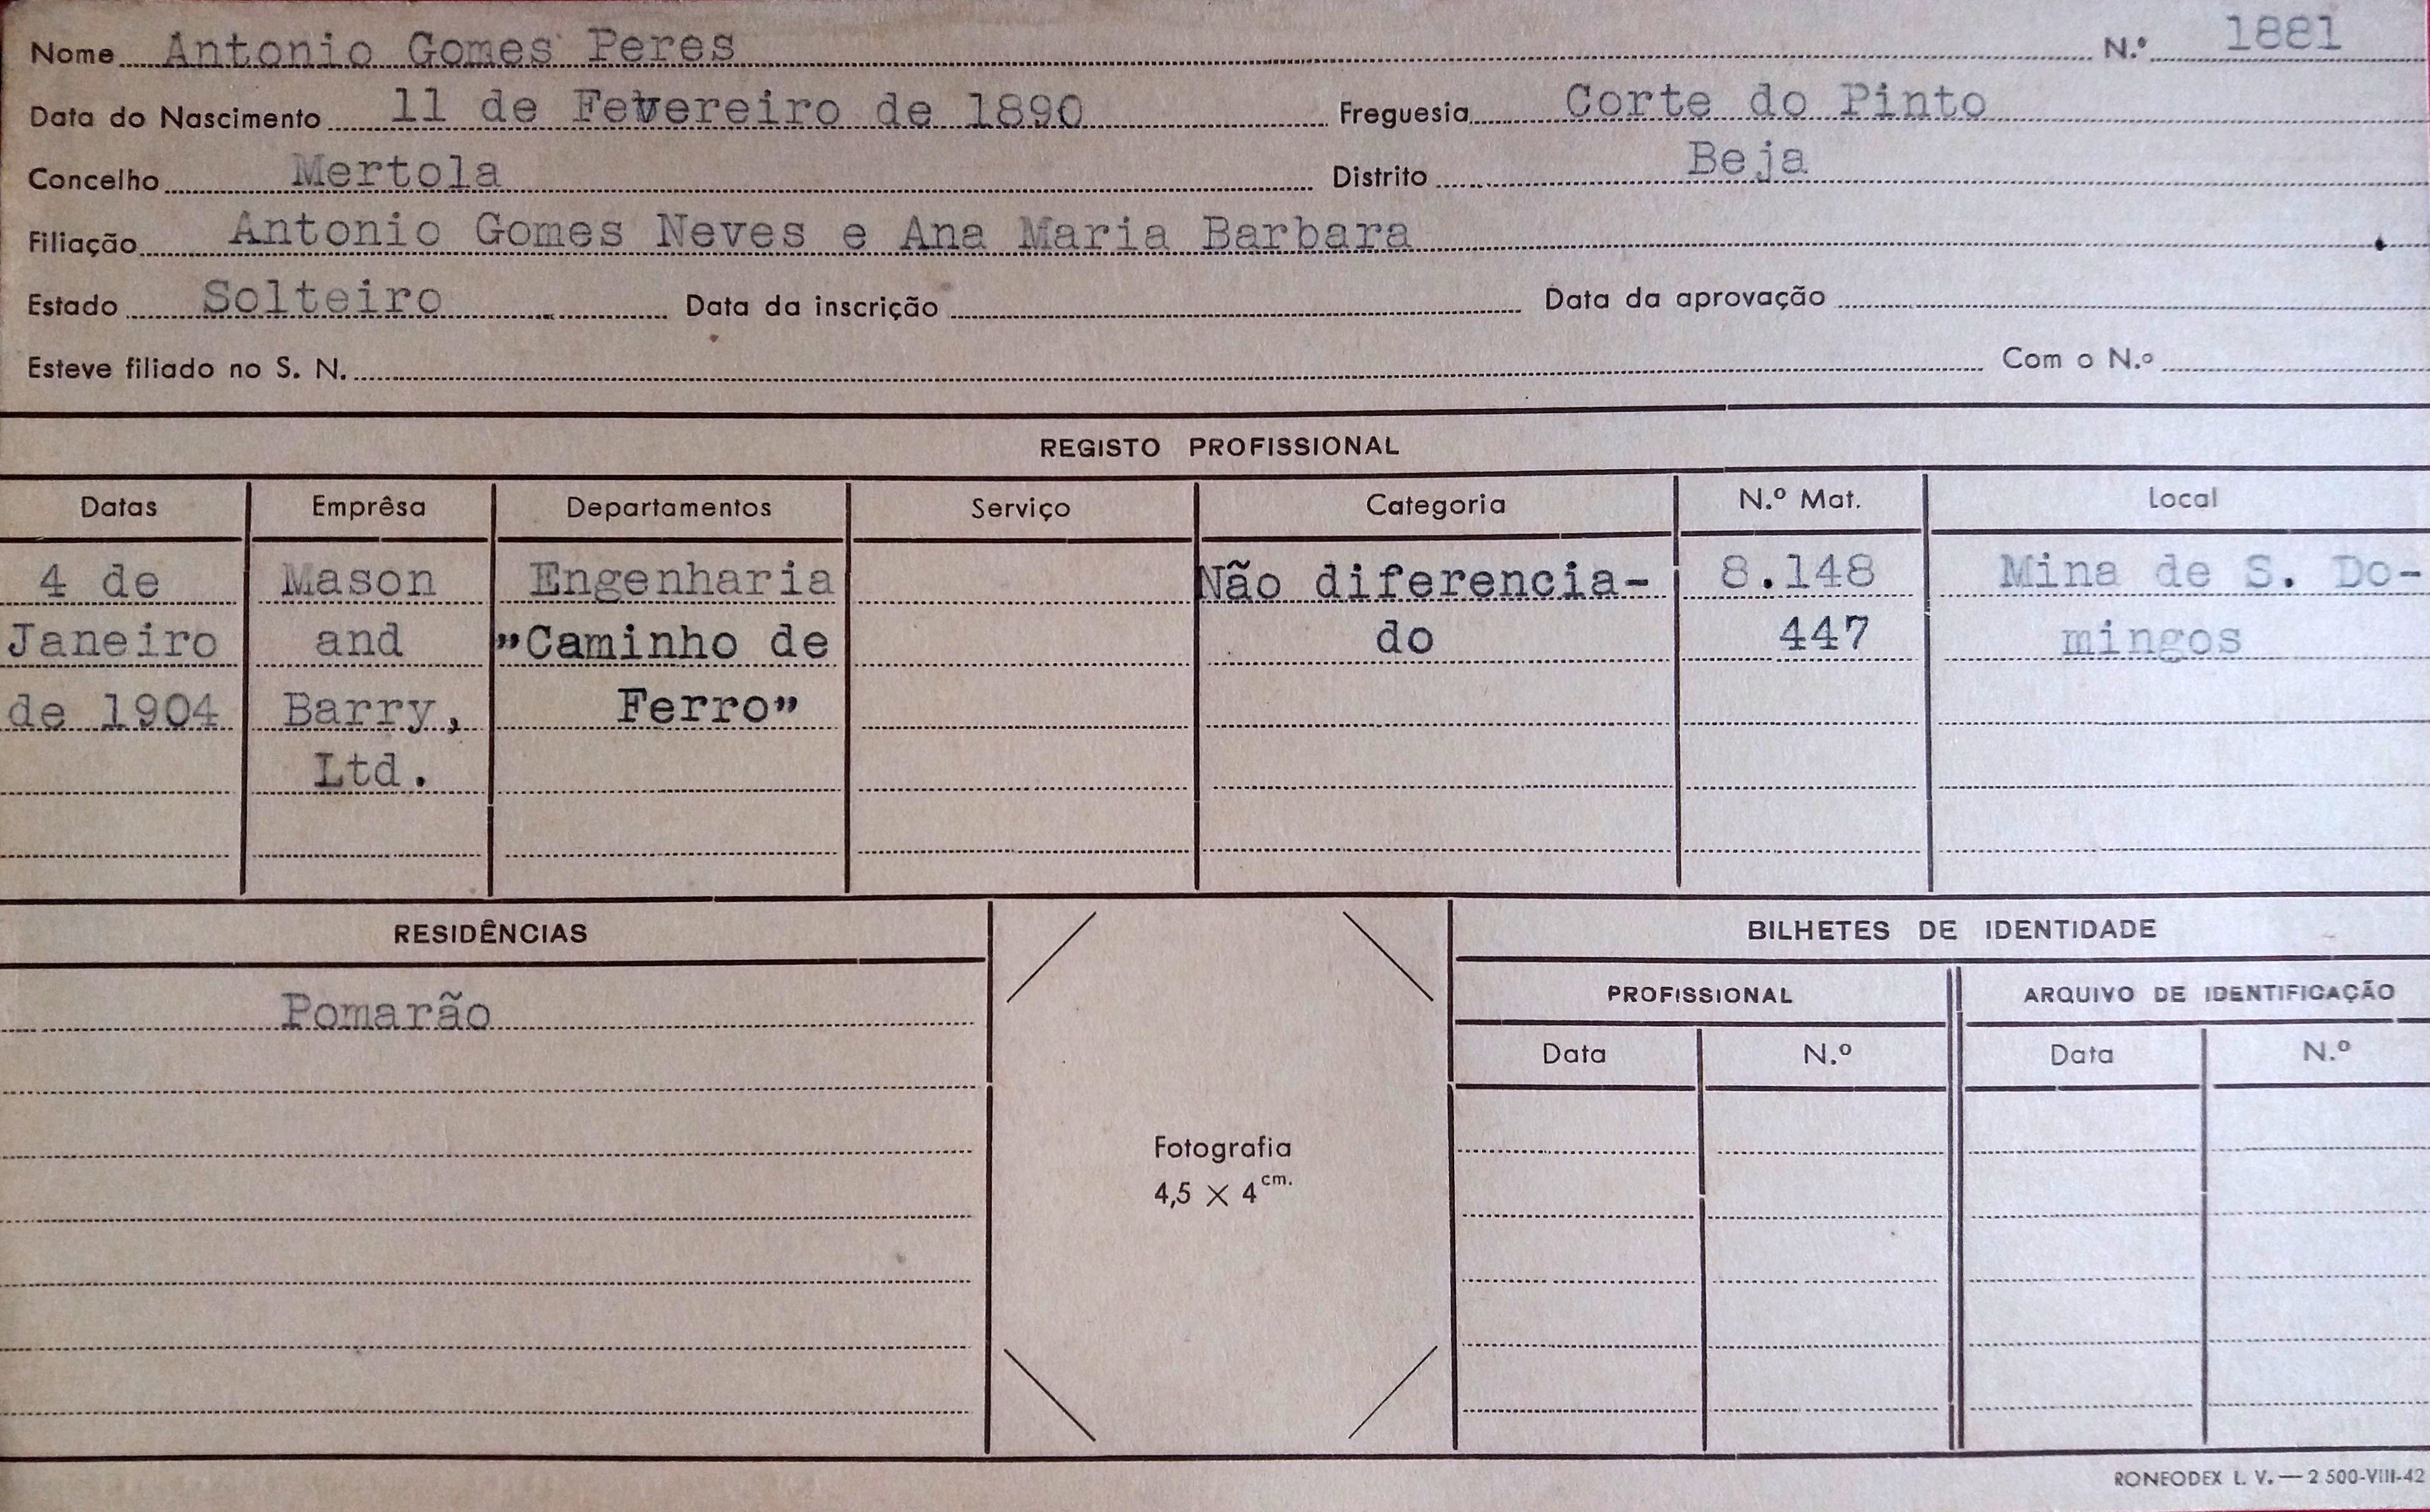 Nome Antonio Gomes Peres N.º 1881
Data do Nascimento 11 de Fevereiro de 1890 Freguesia Corte do Pinto
Concelho Mertola Distrito Beja
Filiação Antonio Gomes Neves e Ana Maria Barbara
Estado Solteiro Data da inscrição Data da aprovação
Esteve filiado no S. N. Com o N.º
REGISTO PROFISSIONAL
Datas Emprêsa Departamentos Serviço Categoria N.º Mat. Local
4 de Mason Engenharia Não diferencia- 8.148 Mina de S. Do-
Janeiro and "Caminho de do 447 mingos
de 1904 Barry, Ferro"
Ltd.
RESIDÊNCIAS BILHETES DE IDENTIDADE
PROFISSIONAL ARQUIVO DE IDENTIFICAÇÃO
Pomarão
Data N.º Data N.º
Fotografia
4,5 × 4 cm.
RONEODEX L. V. — 2 500-VIII-42